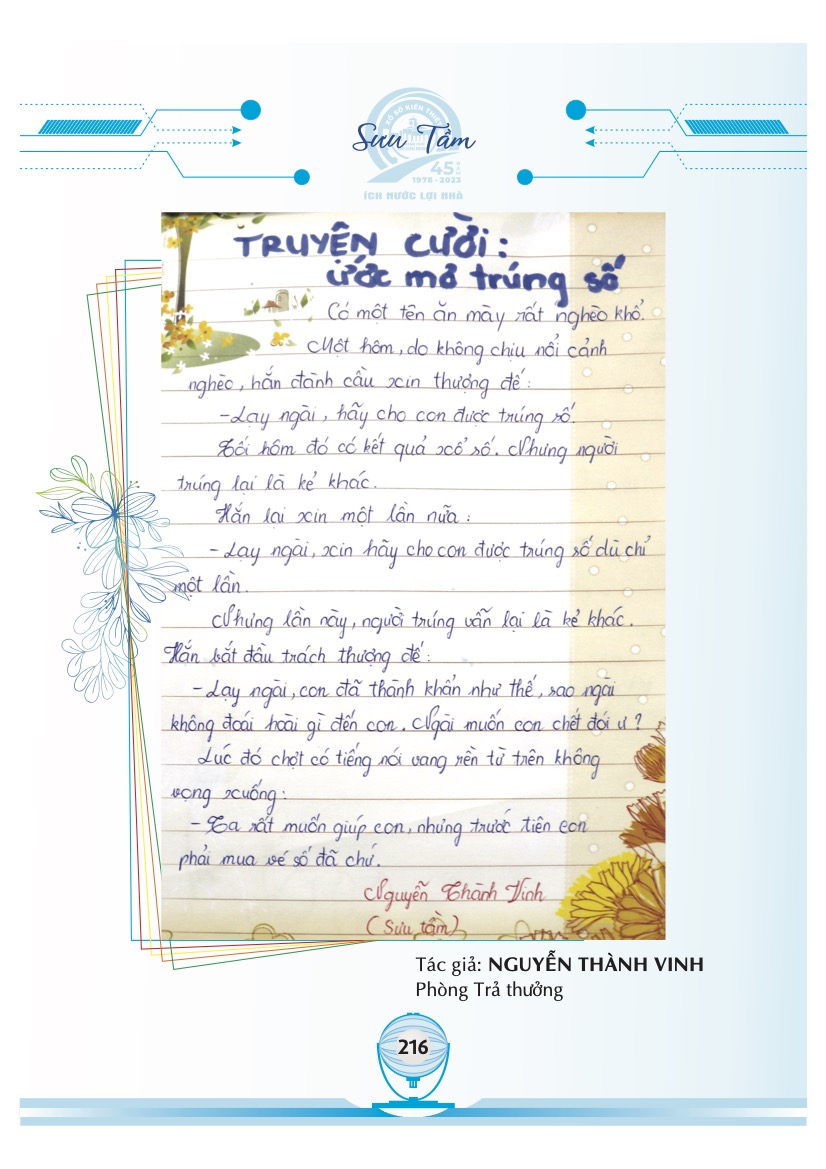 XỔ SỐ KIẾN THIẾT
Sưu Tầm
45 NĂM
1978 - 2023
ÍCH NƯỚC LỢI NHÀ
TRUYỆN CƯỜI:
ƯỚC MƠ TRÚNG SỐ
Có một tên ăn mày rất nghèo khổ.
Một hôm, do không chịu nổi cảnh
nghèo, hắn đành cầu xin thượng đế:
- Lạy ngài, hãy cho con được trúng số.
Tối hôm đó có kết quả xổ số. Nhưng người
trúng lại là kẻ khác.
Hắn lại xin một lần nữa:
- Lạy ngài, xin hãy cho con được trúng số dù chỉ
một lần.
Nhưng lần này, người trúng vẫn lại là kẻ khác.
Hắn bắt đầu trách thượng đế:
- Lạy ngài, con đã thành khẩn như thế, sao ngài
không đoái hoài gì đến con. Ngài muốn con chết đói ư?
Lúc đó chợt có tiếng nói vang rền từ trên không
vọng xuống:
- Ta rất muốn giúp con, nhưng trước tiên con
phải mua vé số đã chứ.
Nguyễn Thành Vinh
(Sưu tầm)
Tác giả: NGUYỄN THÀNH VINH
Phòng Trả thưởng
216